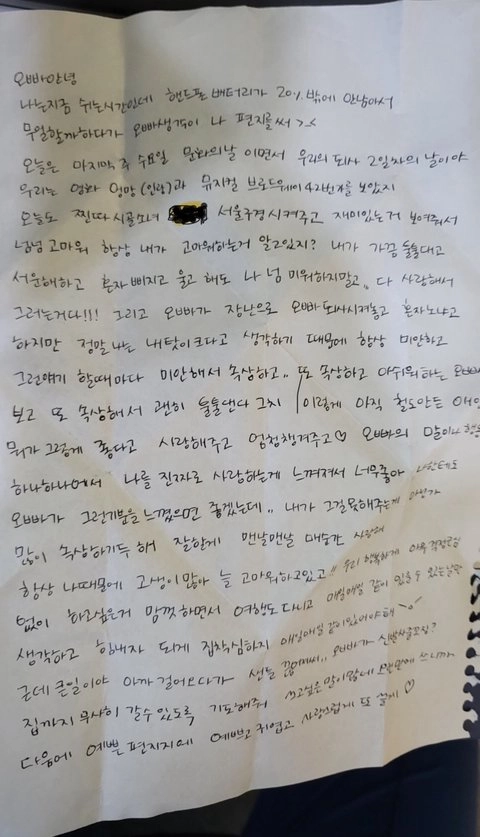 오빠안녕
나는지금 쉬는시간인데 핸드폰 배터리가 20% 밖에 안남아서
무얼할까하다가 오빠생각이 나 편지를써 >_<
오늘은 마지막 주 수요일 문화의날 이면서 우리의퇴사 2일차의 날이야
우리는 영화 엉망(인랑)과 뮤지컬 브로드웨이 42번가를 보았지
오늘도 찐따시골소녀 서울구경시켜주고 재미있는거 보여줘서
넘넘 고마워 항상 내가 고마워하는거 알고있지? 내가 가끔 툴툴대고
서운해하고 혼자 삐지고 울고 해도 나 넘 미워하지말고.. 다 사랑해서
그러는거다!!! 그리고 오빠가 장난으로 오빠 퇴사시켜놓고 혼자노냐고
하지만 정말 나는 내탓이크다고 생각하기 때문에 항상 미안하고
그런얘기 할때마다 미안해서 속상하고.. 또 속상하고 아쉬워하는 오빠
보고 또 속상해서 괜히 툴툴댄다 그치 이렇게 아직 철도안든 애인
뭐가 그렇게 좋다고 사랑해주고 엄청챙겨주고♡ 오빠의 말이나 행동
하나하나에서 나를 진짜로 사랑하는게 느껴져서 너무좋아 나한테도
오빠가 그런기분을 느꼈으면 좋겠는데.. 내가 그걸못해주는게 아닌가
많이 속상하기두 해 잘할게 맨날맨날 매순간 사랑해
항상 나때문에 고생이많아 늘 고마워하고있고!! 우리 행복하게 아무걱정근심
없이 하고싶은거 맘껏하면서 여행도 다니고 매일매일 같이 있을 수 있는날만
생각하고 힘내자 되게 집착심하지 매일매일 같이있어야해
근데 큰일이야 아까 걸어오다가 샌들 끊어졌어.. 오빠가 신발사줄꼬얌?
집까지 무사히 갈수 있도록 기도해줘 쓰고싶은 말이많은데 쓰니까
다음에 예쁜 편지지에 예쁘고 귀엽고 사랑스럽게 또 쓸게 ♡